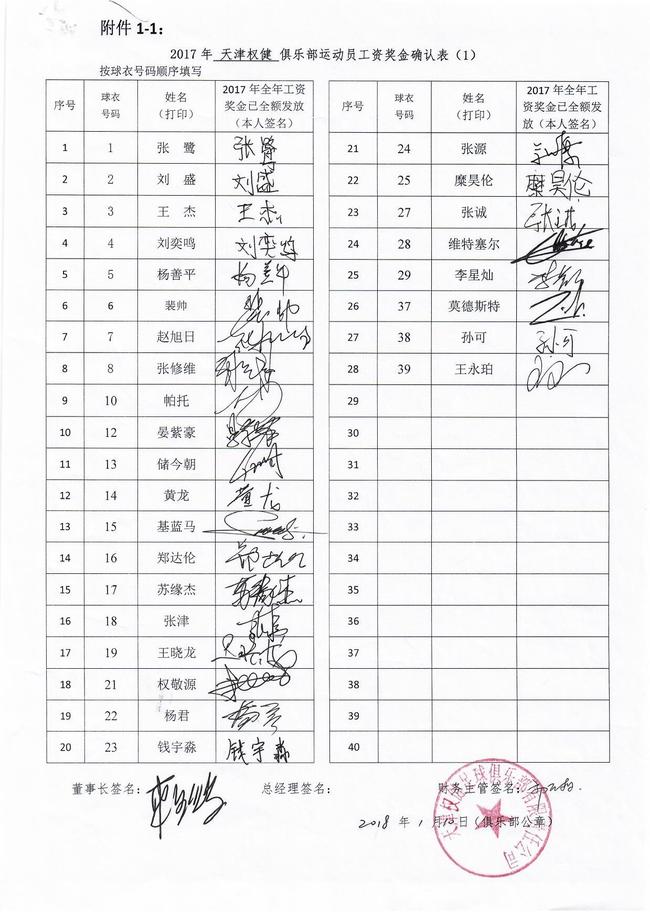 附件 1-1：
2017 年 天津权健 俱乐部运动员工资奖金确认表（1）
按球衣号码顺序填写
序号 球衣号码 姓名（打印） 2017 年全年工资奖金已全额发放（本人签名）
1 1 张 鹭 张鹭
2 2 刘 盛 刘盛
3 3 王 杰 王杰
4 4 刘奕鸣 刘奕鸣
5 5 杨善平 杨善平
6 6 裴帅
7 7 赵旭日
8 8 张修维
9 10 帕托
10 12 晏紫豪
11 13 储今朝
12 14 黄龙 黄龙
13 15 基蓝马
14 16 郑达伦
15 17 苏缘杰
16 18 张津
17 19 王晓龙
18 21 权敬源
19 22 杨君
20 23 钱宇淼 钱宇淼
序号 球衣号码 姓名（打印） 2017 年全年工资奖金已全额发放（本人签名）
21 24 张源
22 25 糜昊伦 糜昊伦
23 27 张诚
24 28 维特塞尔
25 29 李星灿
26 37 莫德斯特
27 38 孙可 孙可
28 39 王永珀
29
30
31
32
33
34
35
36
37
38
39
40
董事长签名： 总经理签名： 财务主管签名：
2018 年 1 月 10 日（俱乐部公章）
天津权健足球俱乐部有限责任公司